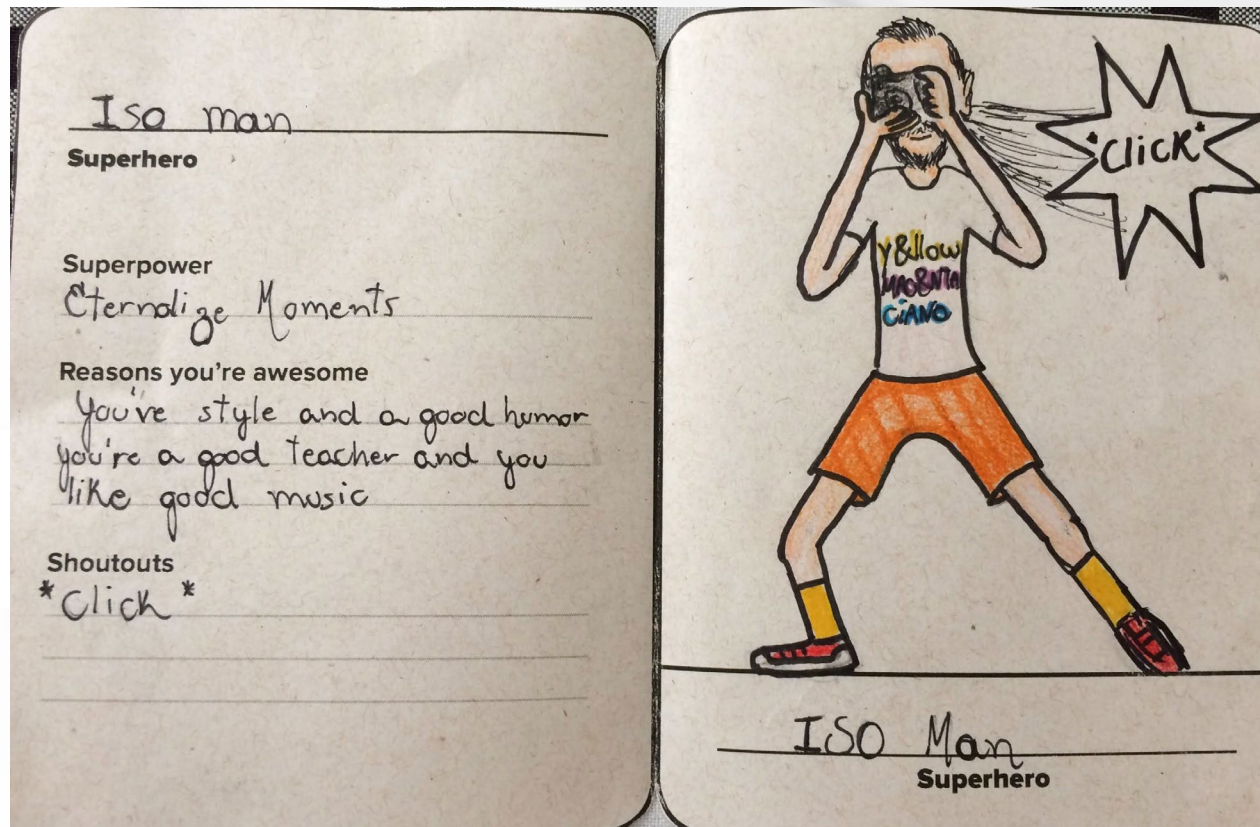 Iso man
Superhero
Superpower
Eternalize Moments
Reasons you're awesome
You've style and a good humor
you're a good teacher and you
like good music
Shoutouts
*Click*
*Click*
Y&llow
MAG&NTA
CiANO
ISO Man
Superhero